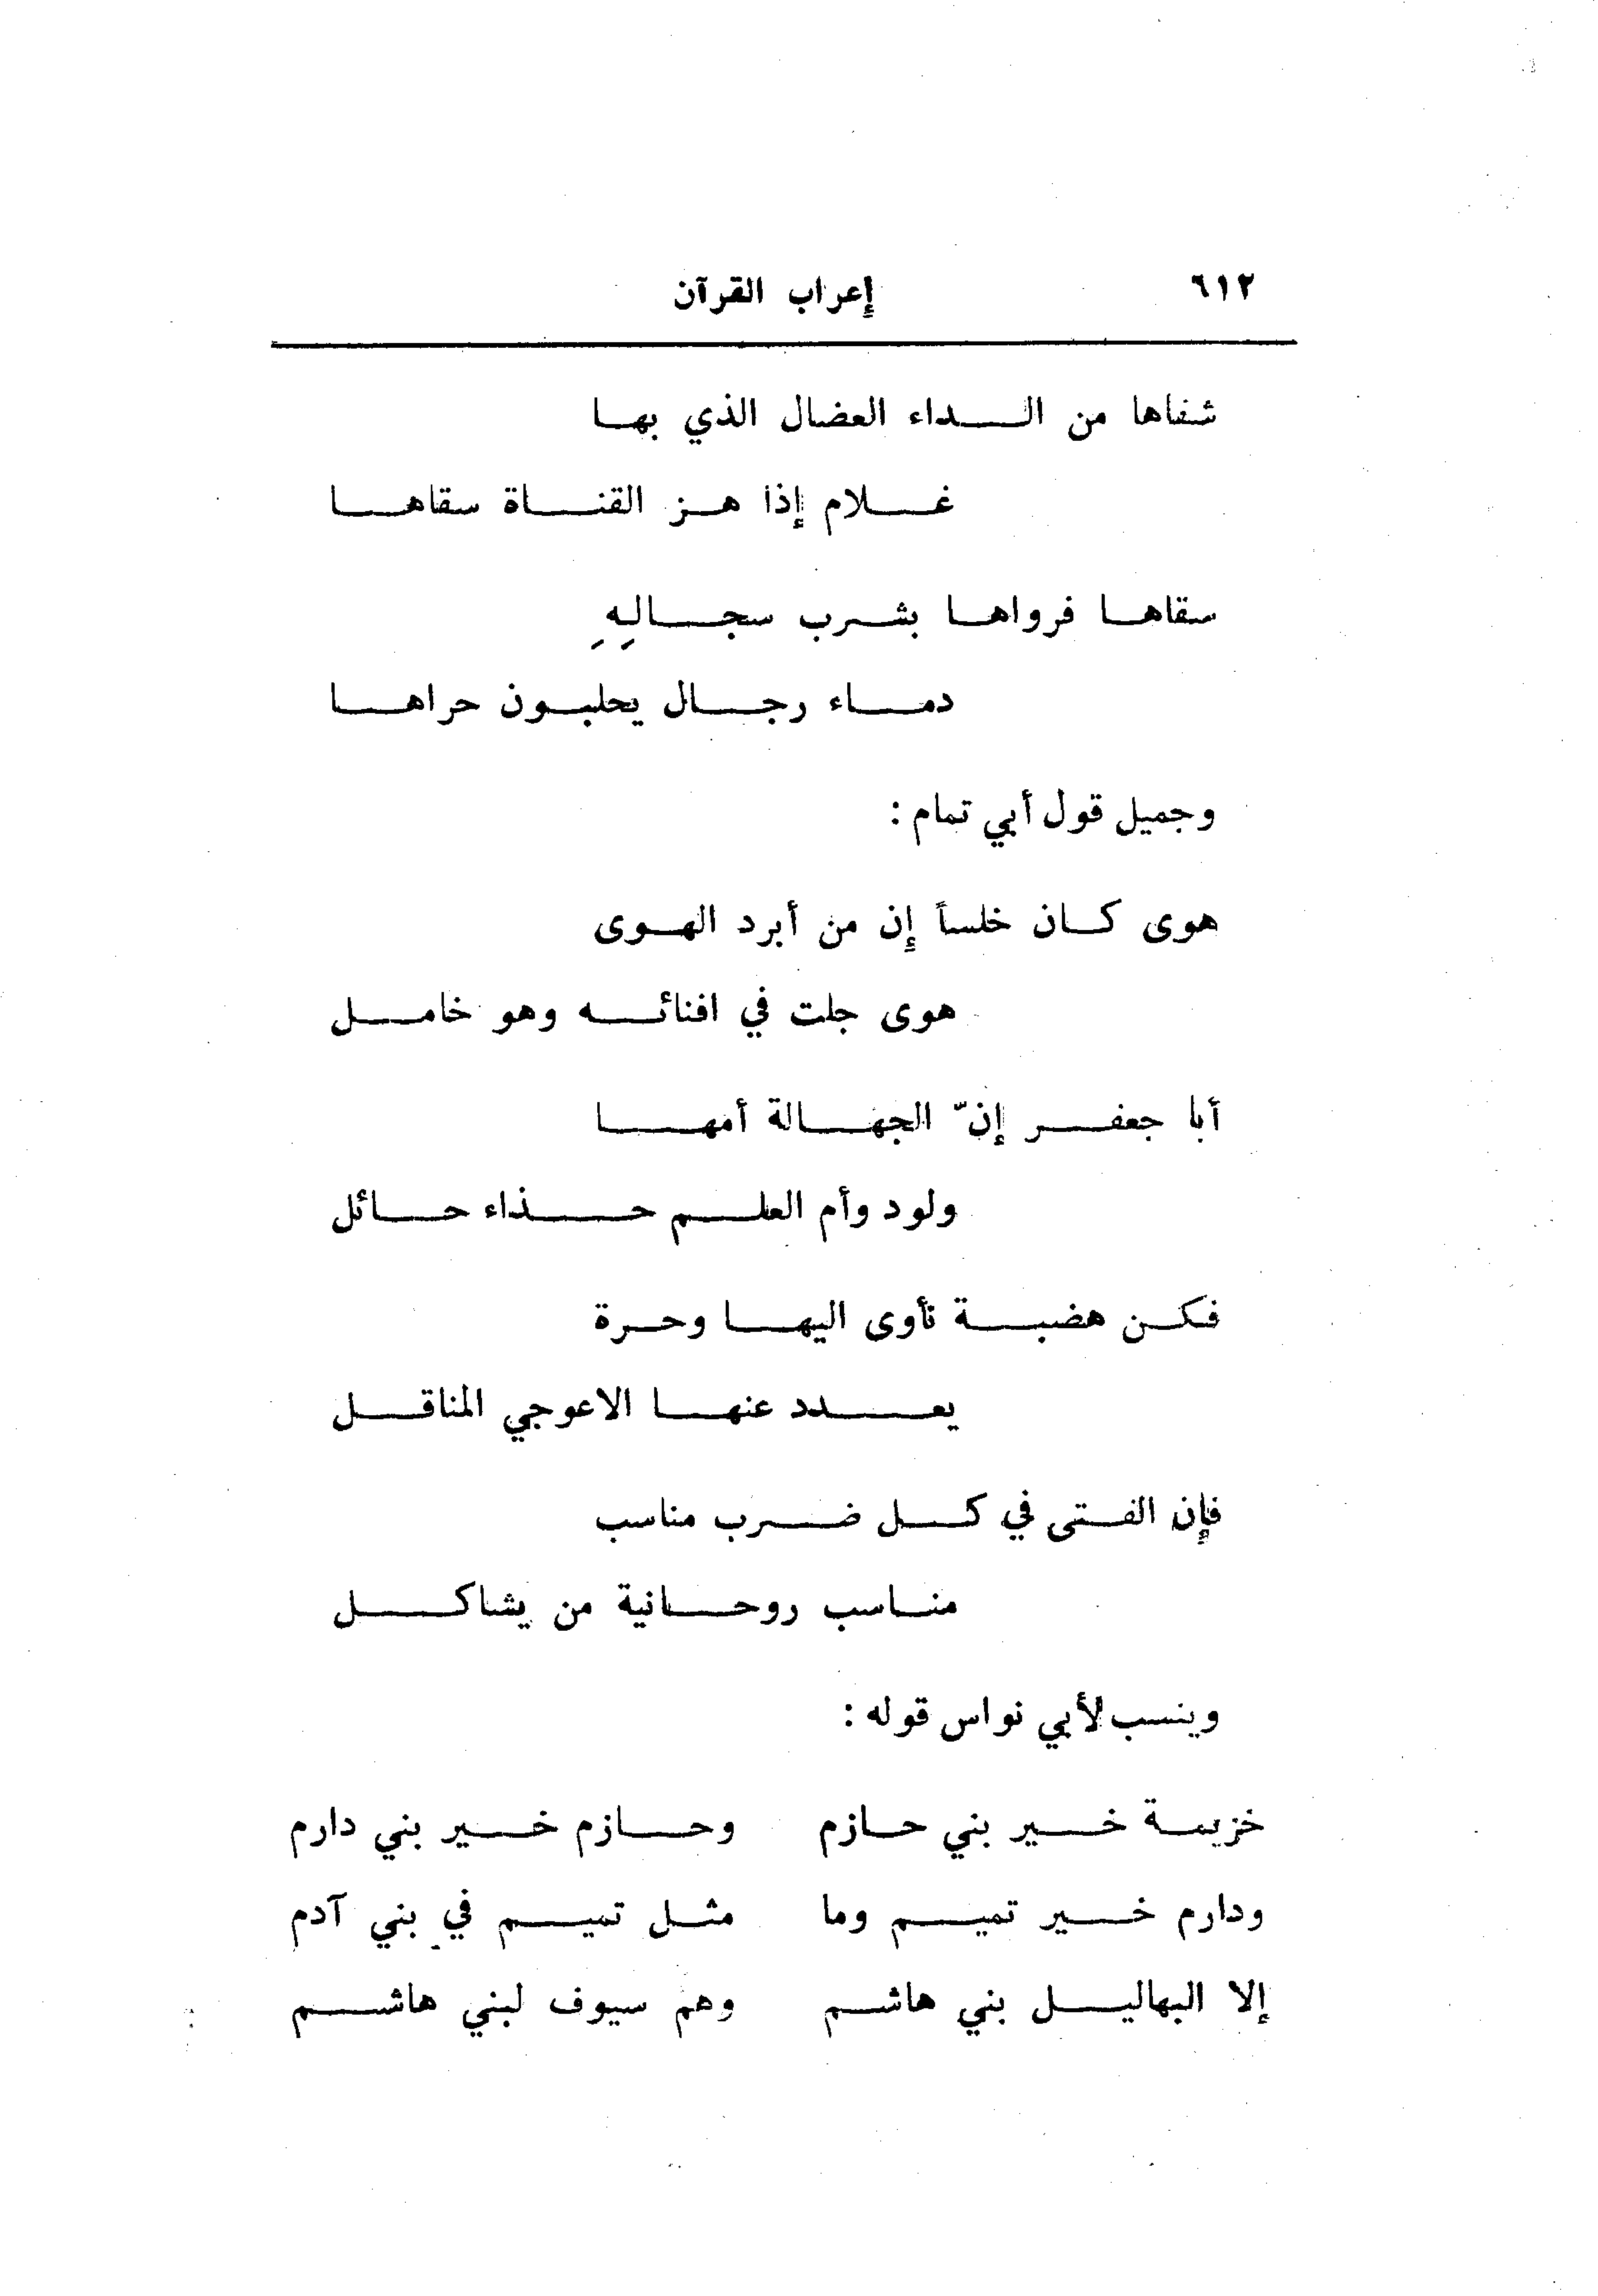 ٦١٢ إعراب القرآن
شفاها من الداء العضال الذي بها
غلام إذا هز القناة سقاها
سقاها فرواها بشرب سجالِهِ
دماء رجال يحلبون حراها
وجميل قول أبي تمام :
هوى كان خلساً إن من أبرد الهوى
هوى جلت في افنائه وهو خامل
أبا جعفر إنّ الجهالة أمها
ولود وأم العلم حذاء حائل
فكن هضبة نأوى اليها وحرة
يعدد عنها الاعوجي المناقل
فإن الفتى في كل ضرب مناسب
مناسب روحانية من يشاكل
وينسب لأبي نواس قوله :
خزيمة خير بني حازم وحازم خير بني دارم
ودارم خير تميم وما مثل تميم في بني آدم
إلا البهاليل بني هاشم وهم سيوف لبني هاشم